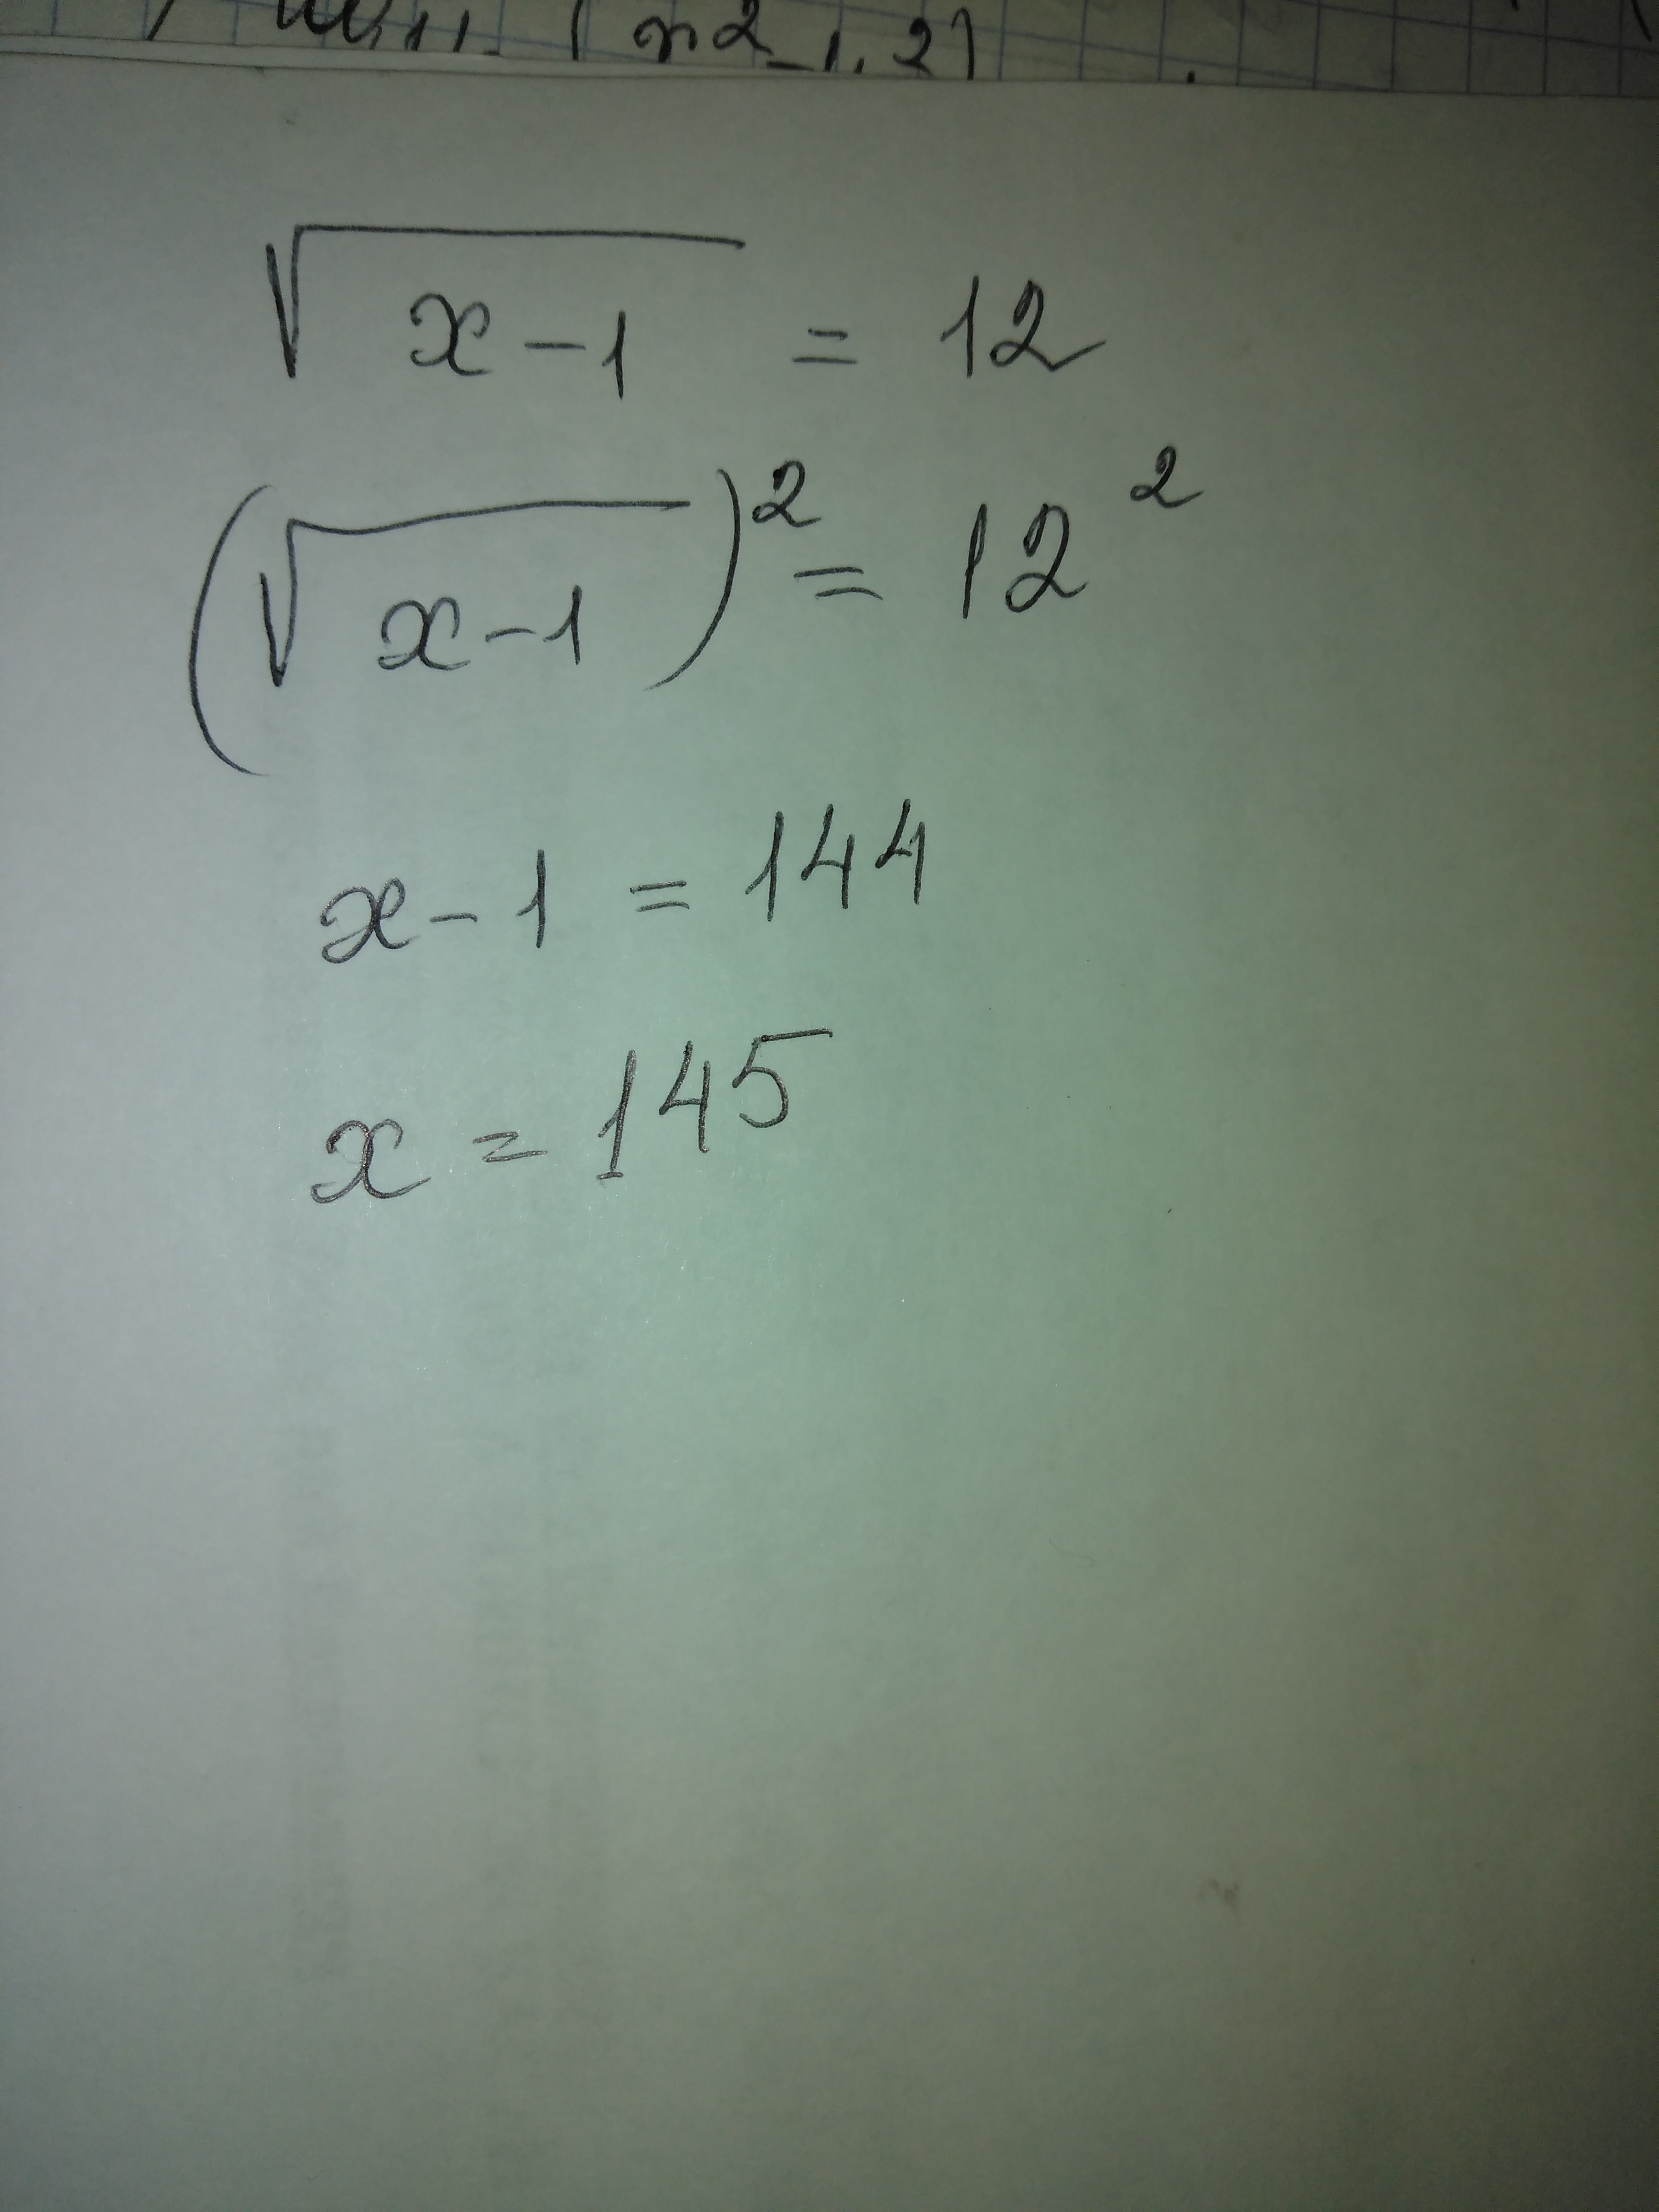 (x²-1, 2)
√(x-1) = 12
(√(x-1))² = 12²
x-1 = 144
x = 145